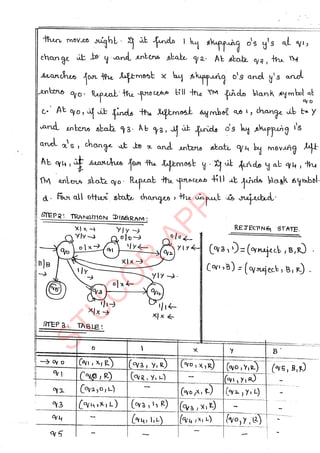 then moves right. If it finds 1 by skipping 0's y's at q1,
change it to y and enters state q2. At state q2, the TM
searches for the leftmost x by skipping 0's and y's and
enters q0. Repeat the process till the TM finds blank symbol at
q0
c. At q0, if it finds the leftmost symbol as 1, change it to y
and enters state q3. At q3, if it finds 0's by skipping 1's
and x's, change it to x and enters state q4 by moving left
At q4, it searches for the leftmost y. If it finds y at q4, the
TM enters state q0. Repeat the process till it finds blank symbol.
d. For all other state changes, the input is rejected.
STEP 2: TRANSITION DIAGRAM:
REJECTING STATE.
x/x → y/y →
0/0 → 0/0 ←
0/x → 1/y ← y/y ←
q0 q1 q2
x/x →
B/B → 1/y → y/y →
0/x ←
q5 q3 q4
1/1 → 1/1 ←
x/x → x/x ←
(q3, ) = (qreject, B, R).
(q1, B) = (qreject, B, R).
STUCOR APP
STEP 3: TABLE:
0 1 x y B
→ q0 (q1, x, R) (q3, y, R) (q0, x, R) (q0, y, R) (q5, B, R)
q1 R) (q2, y, L) - (q1, y, R)
q2 (q2, 0, L) - (q0, x, R) (q2, y, L) -
q3 (q4, x, L) (q3, 1, R) (q3, x, R) - -
q4 - (q4, 1, L) (q4, x, L) (q0, y, R) -
q5 - - - - -